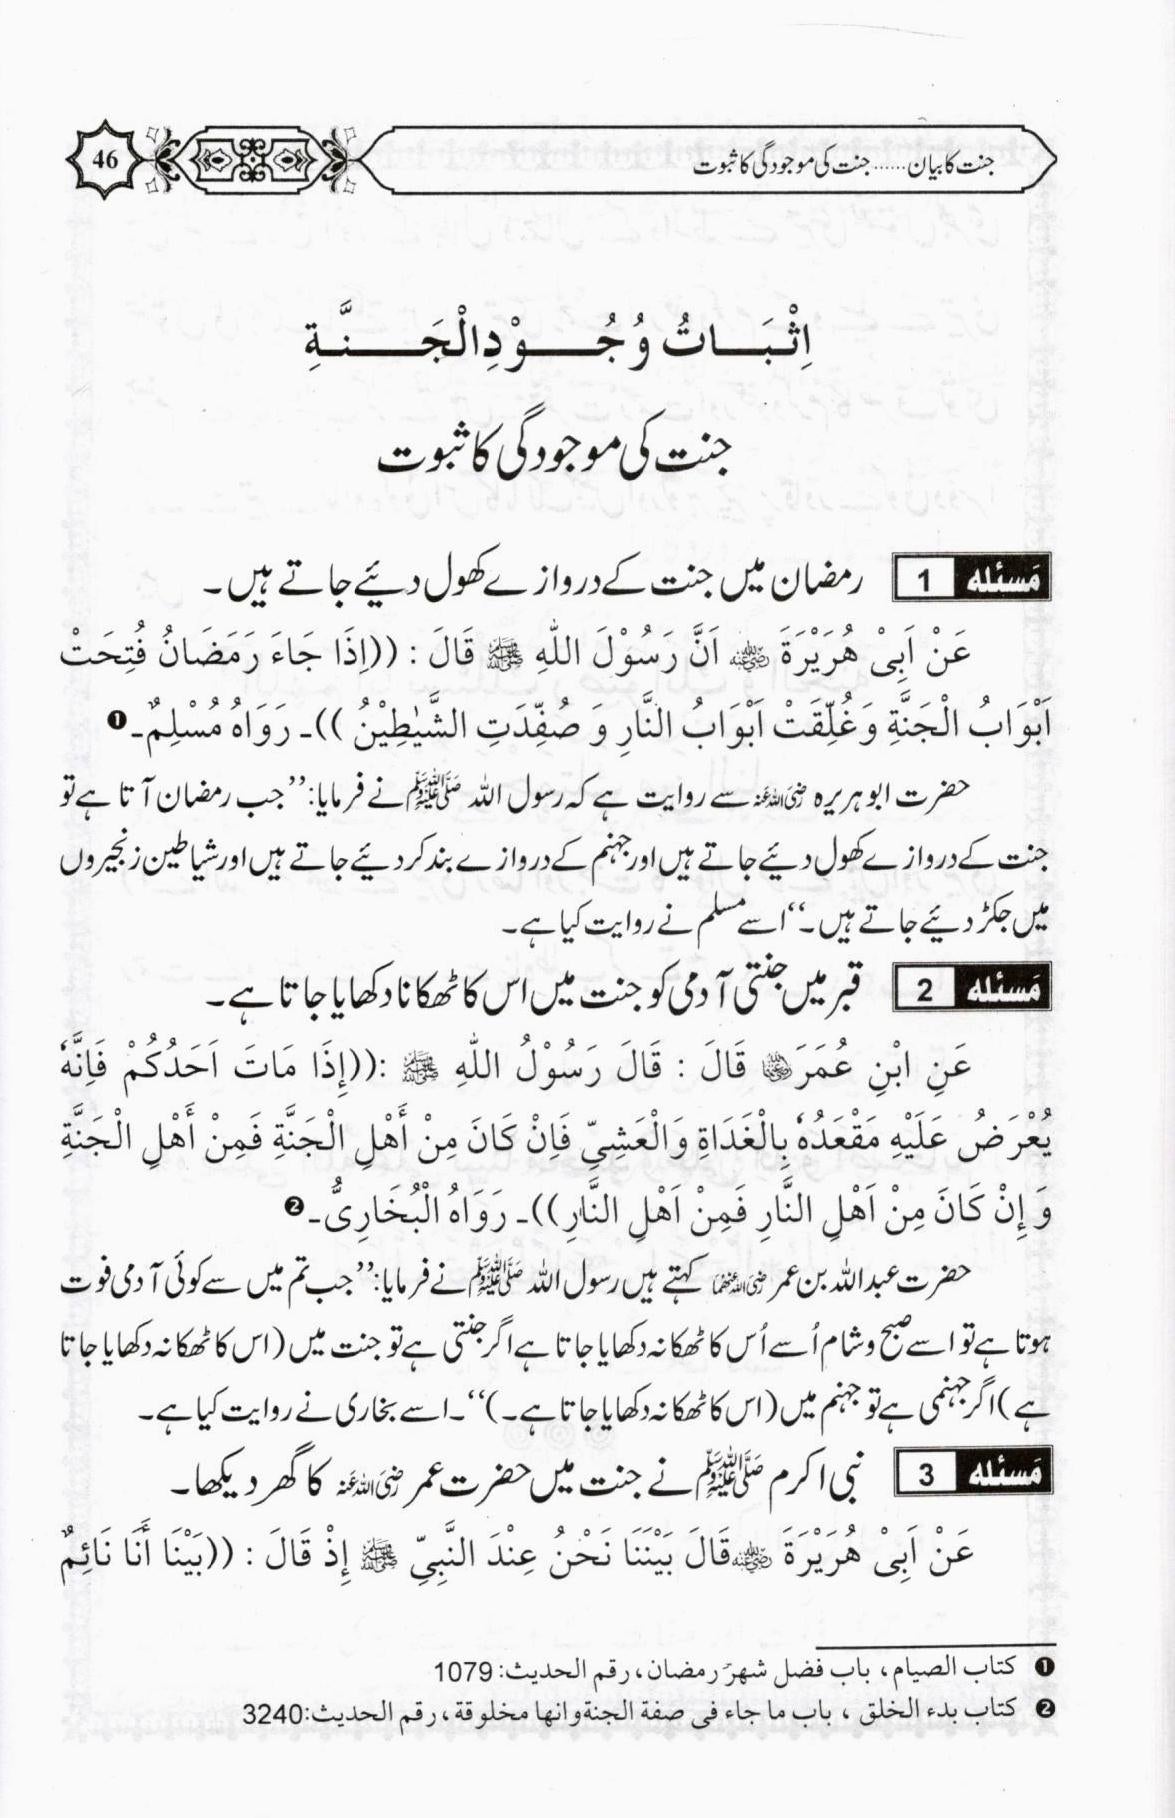 جنت کا بیان ...... جنت کی موجودگی کا ثبوت
46
اِثْبَاتُ وُجُوْدِ الْجَنَّةِ
جنت کی موجودگی کا ثبوت
مَسئله 1 رمضان میں جنت کے دروازے کھول دیئے جاتے ہیں۔
عَنْ اَبِیْ هُرَيْرَةَ رضی اللہ عنہ اَنَّ رَسُوْلَ اللّٰهِ ﷺ قَالَ : ((اِذَا جَاءَ رَمَضَانُ فُتِحَتْ
اَبْوَابُ الْجَنَّةِ وَغُلِّقَتْ اَبْوَابُ النَّارِ وَ صُفِّدَتِ الشَّيٰطِيْنُ ))۔ رَوَاهُ مُسْلِمٌ۔❶
حضرت ابو ہریرہ رضی اللہ عنہ سے روایت ہے کہ رسول اللہ ﷺ نے فرمایا: ’’جب رمضان آتا ہے تو
جنت کے دروازے کھول دیئے جاتے ہیں اور جہنم کے دروازے بند کر دیئے جاتے ہیں اور شیاطین زنجیروں
میں جکڑ دیئے جاتے ہیں۔‘‘ اسے مسلم نے روایت کیا ہے۔
مَسئله 2 قبر میں جنتی آدمی کو جنت میں اس کا ٹھکانا دکھایا جاتا ہے۔
عَنِ ابْنِ عُمَرَ رضی اللہ عنہما قَالَ : قَالَ رَسُوْلُ اللّٰهِ ﷺ :((إِذَا مَاتَ اَحَدُكُمْ فَاِنَّهٗ
يُعْرَضُ عَلَيْهِ مَقْعَدُهٗ بِالْغَدَاةِ وَالْعَشِيِّ فَاِنْ كَانَ مِنْ أَهْلِ الْجَنَّةِ فَمِنْ أَهْلِ الْجَنَّةِ
وَ إِنْ كَانَ مِنْ اَهْلِ النَّارِ فَمِنْ اَهْلِ النَّارِ))۔ رَوَاهُ الْبُخَارِیُّ۔❷
حضرت عبداللہ بن عمر رضی اللہ عنہما کہتے ہیں رسول اللہ ﷺ نے فرمایا: ’’جب تم میں سے کوئی آدمی فوت
ہوتا ہے تو اسے صبح و شام اُسے اُس کا ٹھکانہ دکھایا جاتا ہے اگر جنتی ہے تو جنت میں (اس کا ٹھکانہ دکھایا جاتا
ہے) اگر جہنمی ہے تو جہنم میں (اس کا ٹھکانہ دکھایا جاتا ہے۔)‘‘۔ اسے بخاری نے روایت کیا ہے۔
مَسئله 3 نبی اکرم ﷺ نے جنت میں حضرت عمر رضی اللہ عنہ کا گھر دیکھا۔
عَنْ اَبِیْ هُرَيْرَةَ رضی اللہ عنہ قَالَ بَيْنَنَا نَحْنُ عِنْدَ النَّبِيِّ ﷺ إِذْ قَالَ : ((بَيْنَا أَنَا نَائِمٌ
❶ كتاب الصيام، باب فضل شهر رمضان، رقم الحديث: 1079
❷ كتاب بدء الخلق ، باب ما جاء فی صفة الجنة وانها مخلوقة، رقم الحديث:3240